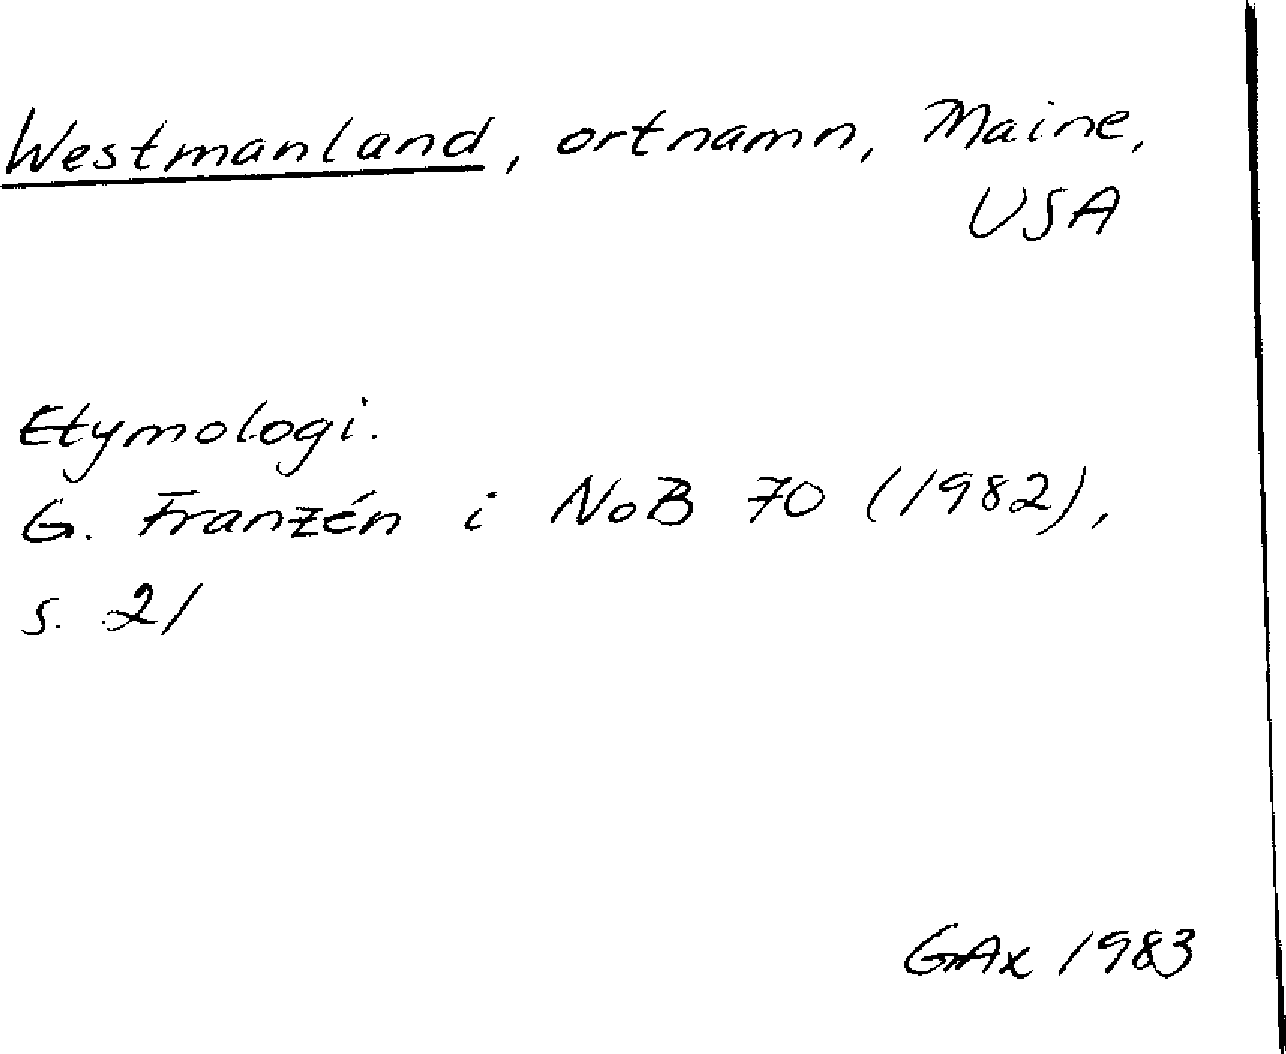 Westmanland, ortnamn, Maine,
USA
Etymologi.
G. Franzén i NoB 70 (1982),
s. 21
GAx 1983